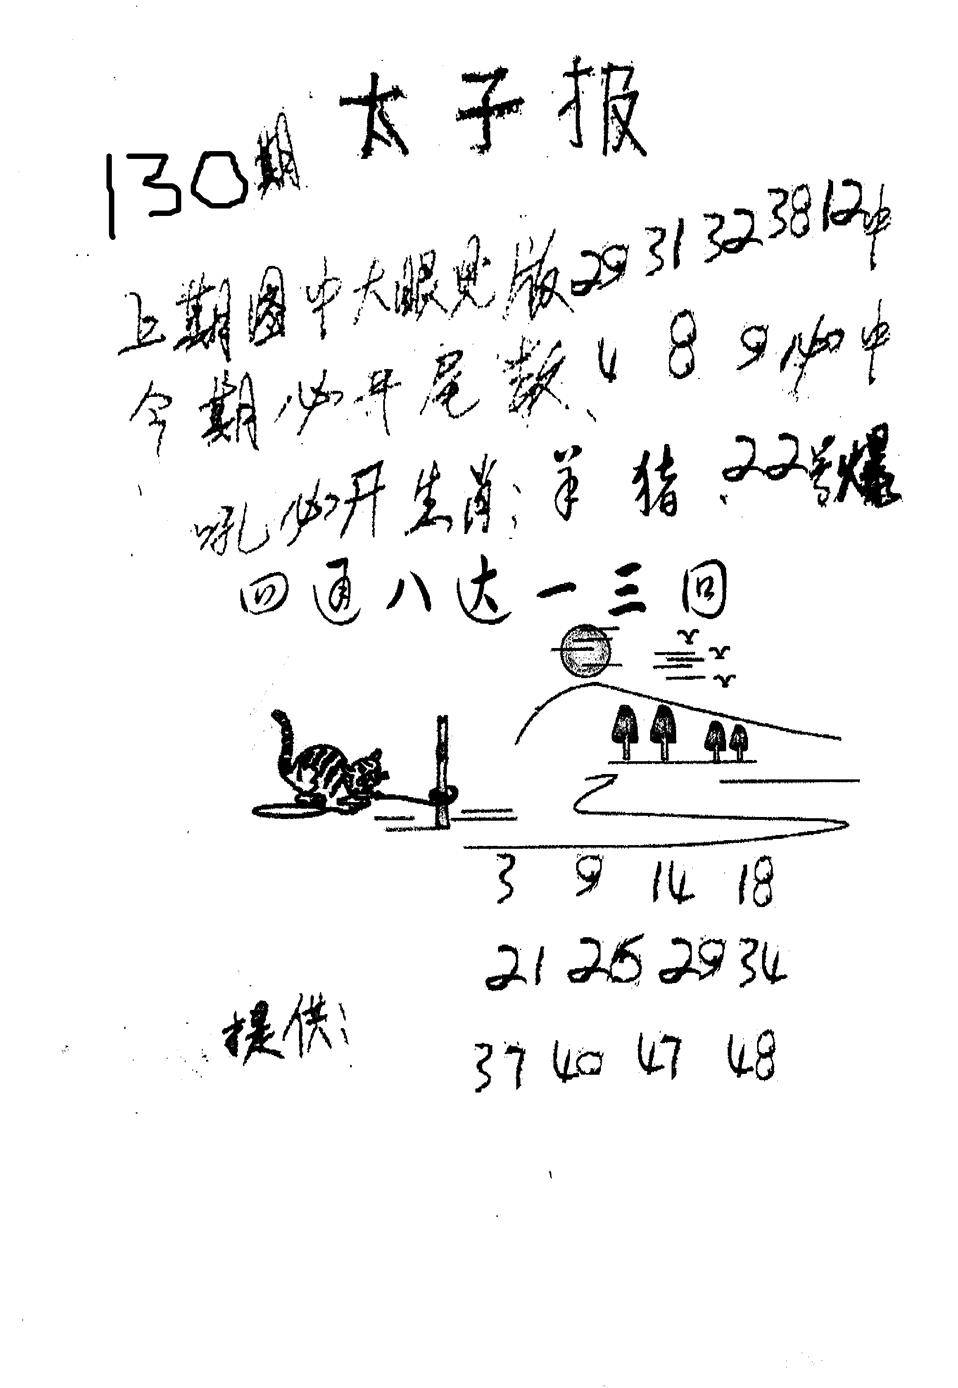 太子报
130期
上期图中大眼见版29 31 32 38 12中
今期必开尾数、4 8 9必中
吼必开生肖:羊 猪、22号爆
四通八达一三回
3 9 14 18
21 26 29 34
提供:
37 40 47 48